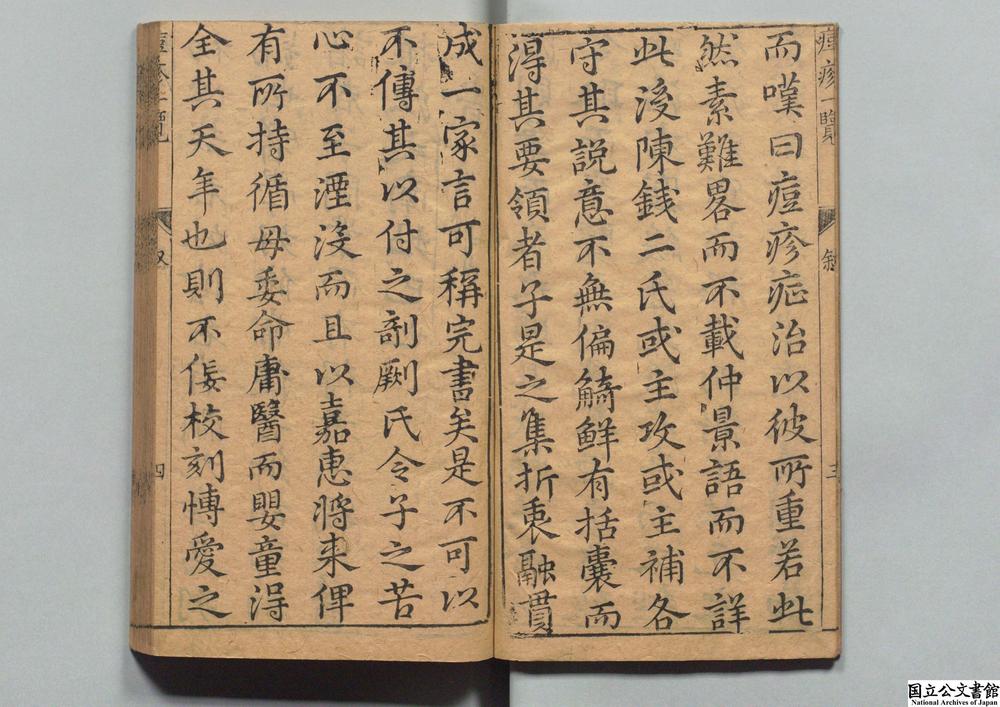 痘疹一覽
敘
三
而嘆曰痘疹疪治以彼所重若此
然素難畧而不載仲景語而不詳
此後陳錢二氏或主攻或主補各
守其説意不無偏觭鮮有括囊而
得其要領者子是之集折衷融貫
成一家言可稱完書矣是不可以
不傳其以付之剞劂氏令子之苦
心不至湮沒而且以嘉惠將来俾
有所持循毋委命庸醫而嬰童得
全其天年也則不佞校刻慱愛之
四
国立公文書館
National Archives of Japan